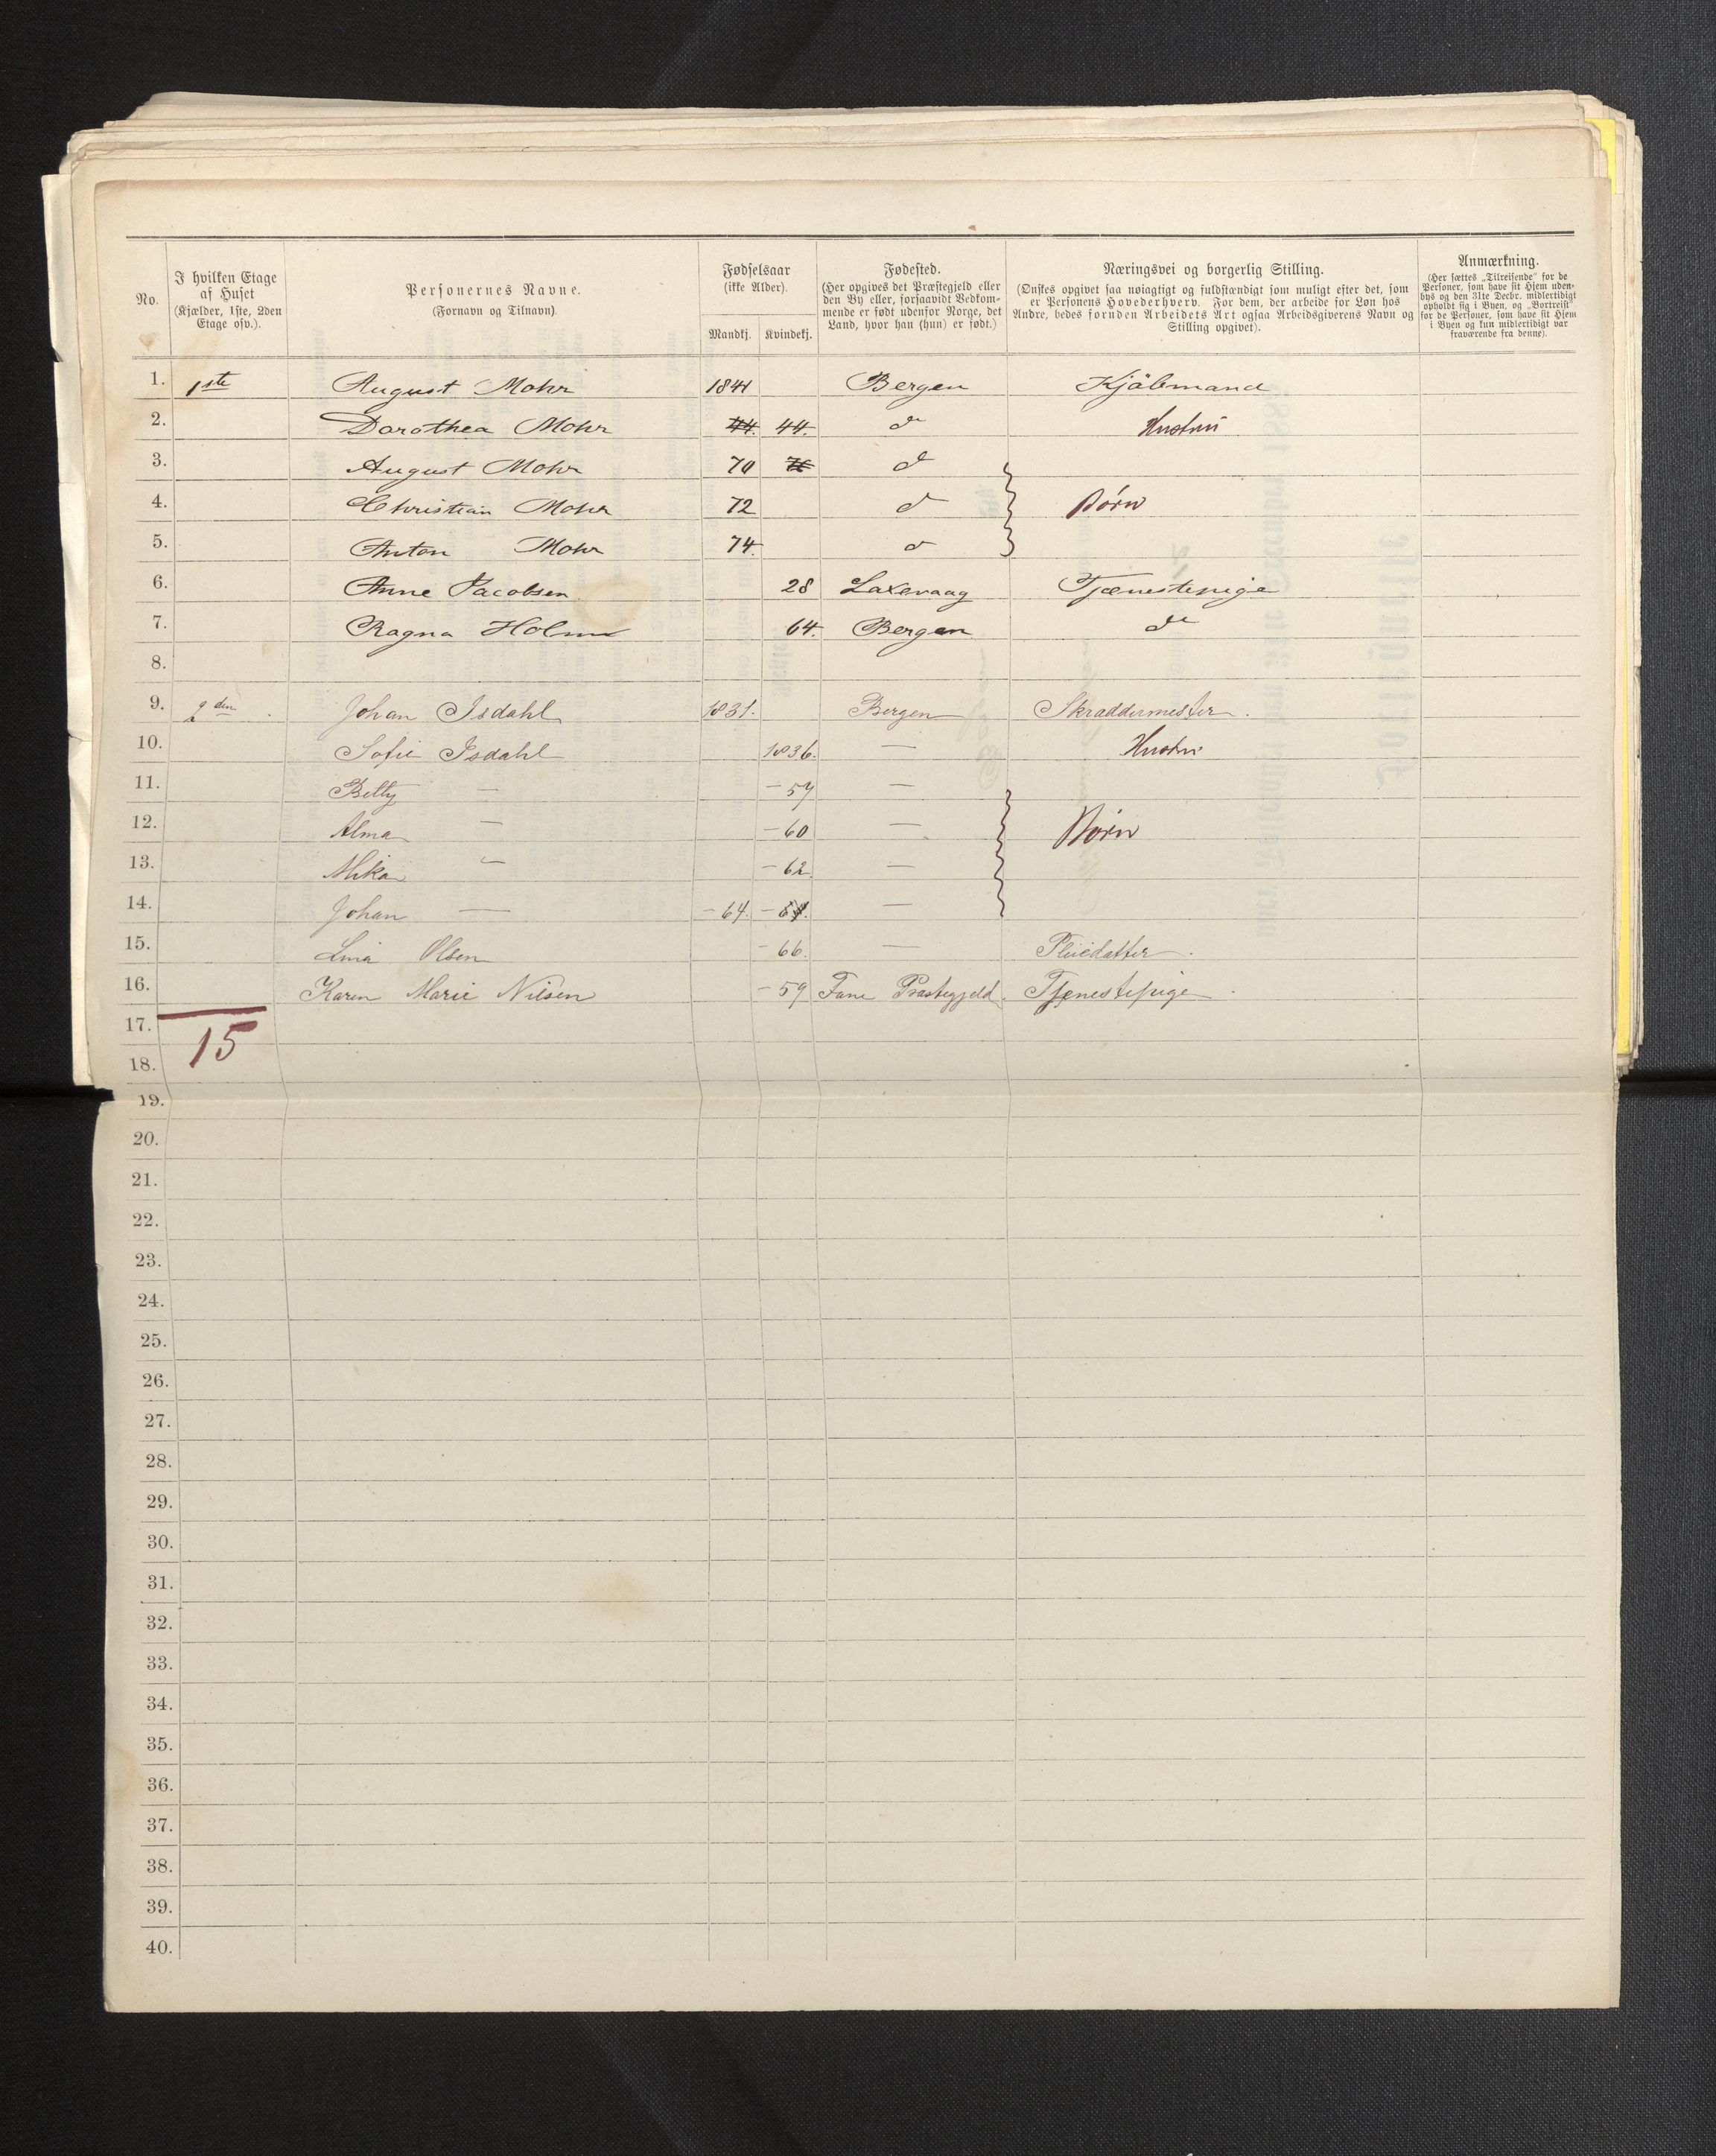 No.
I hvilken Etage af Huset (Kjælder, 1ste, 2den Etage osv.).
Personernes Navne. (Fornavn og Tilnavn).
Fødselsaar (ikke Alder). Mandkj. Kvindekj.
Fødested. (Her opgives det Præstegjeld eller den By eller, forsaavidt Vedkommende er født udenfor Norge, det Land, hvor han (hun) er født.)
Næringsvei og borgerlig Stilling. (Ønskes opgivet saa nøiagtigt og fuldstændigt som muligt efter det, som er Personens Hovederhverv. For dem, der arbeide for Løn hos Andre, bedes foruden Arbeidets Art ogsaa Arbeidsgiverens Navn og Stilling opgivet).
Anmærkning. (Her sættes „Tilreisende" for de Personer, som have sit Hjem udenbys og den 31te Decbr. midlertidigt opholdt sig i Byen, og „Bortreist" for de Personer, som have sit Hjem i Byen og kun midlertidigt var fraværende fra denne).
1. 1ste August Mohr 1841 Bergen Kjöbmand
2. Dorothea Mohr 44. 44. do Hustru
3. August Mohr 70 70 do
4. Christian Mohr 72 do Børn
5. Anton Mohr 74. do
6. Anne Jacobsen 28 Laxevaag Tjenestepige
7. Ragna Holm 64. Bergen do
8.
9. 2den Johan Isdahl 1831. Bergen Skræddermester.
10. Sofie Isdahl 1836. — Hustru
11. Betty — – 59 —
12. Alma — – 60 — Børn
13. Mika — – 62. —
14. Johan — – 64. – 64. —
15. Lina Olsen – 66. — Pleiedatter.
16. Karen Marie Nilsen – 59 Fane Præstegjeld. Tjenestepige.
17.
15
18.
19.
20.
21.
22.
23.
24.
25.
26.
27.
28.
29.
30.
31.
32.
33.
34.
35.
36.
37.
38.
39.
40.